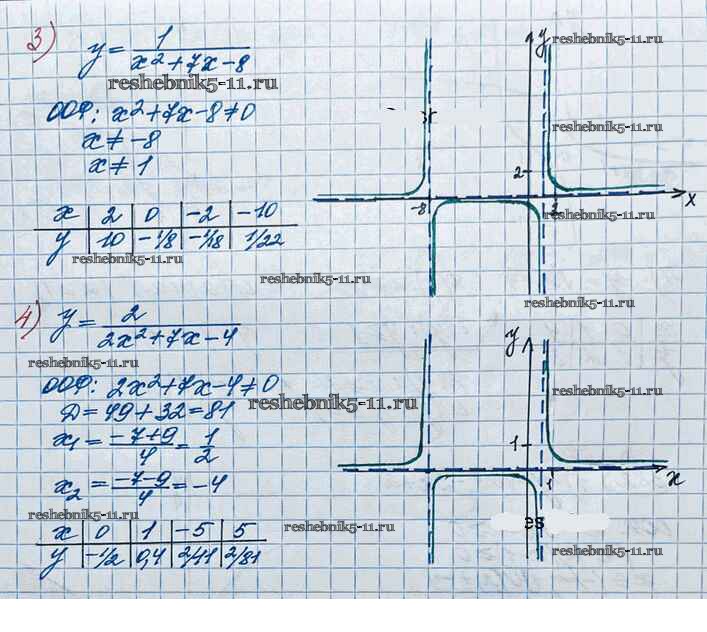 3) y = 1/(x²+7x-8)
reshebnik5-11.ru
ООФ: x²+7x-8≠0
x ≠ -8
x ≠ 1
x | 2 | 0 | -2 | -10
y | 10 | -1/8 | -1/18 | 1/22
reshebnik5-11.ru
y
reshebnik5-11.ru
reshebnik5-11.ru
2
-8
x
reshebnik5-11.ru
reshebnik5-11.ru
4) y = 2/(2x²+7x-4)
reshebnik5-11.ru
ООФ: 2x²+7x-4≠0
Д=49+32=81
x₁ = (-7+9)/4 = 1/2
x₂ = (-7-9)/4 = -4
x | 0 | 1 | -5 | 5
y | -1/2 | 0,4 | 2/11 | 2/81
reshebnik5-11.ru
y
reshebnik5-11.ru
reshebnik5-11.ru
1
1
x
reshebnik5-11.ru
es
reshebnik5-11.ru